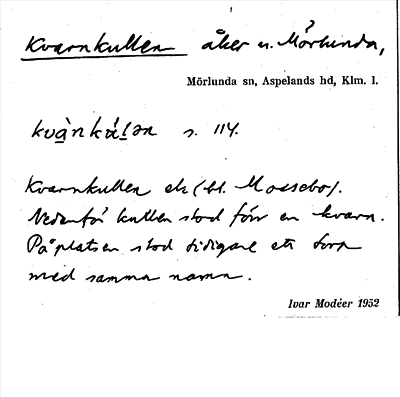 Kvarnkullen åker u. Mörlunda,
Mörlunda sn, Aspelands hd, Klm. l.
kvànkálan s. 114.
Kvarnkullen ek (bl. Mossebo).
Nedanför kullen stod förr en kvarn.
På platsen stod tidigare ett torp
med samma namn.
Ivar Modéer 1952